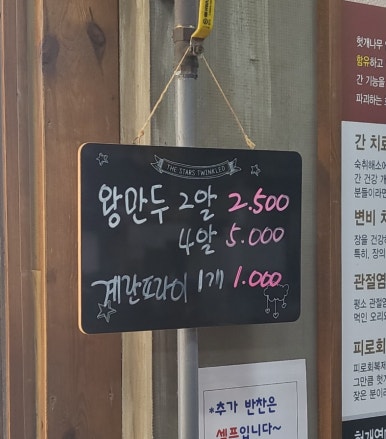 THE STARS TWINKLED
왕만두 2알 2.500
4알 5.000
계란프라이 1개 1.000
*추가 반찬은
셀프입니다~
헛개나무
함유하고
간 기능을
파괴하는
간 치료
숙취해소에
간 건강
분들이라면
변비 치
장을 건강하
특히, 장의
관절염
평소 관절염
먹인 오리와
피로회
피로회복제
그만큼 헛개
잦은 분이라